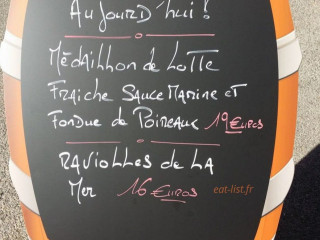 Aujourd'hui !
Médaillhon de Lotte
Fraiche Sauce Marine et
Fondue de Poireaux 19 Euros
Raviolles de la
Mer 16 Euros
eat-list.fr